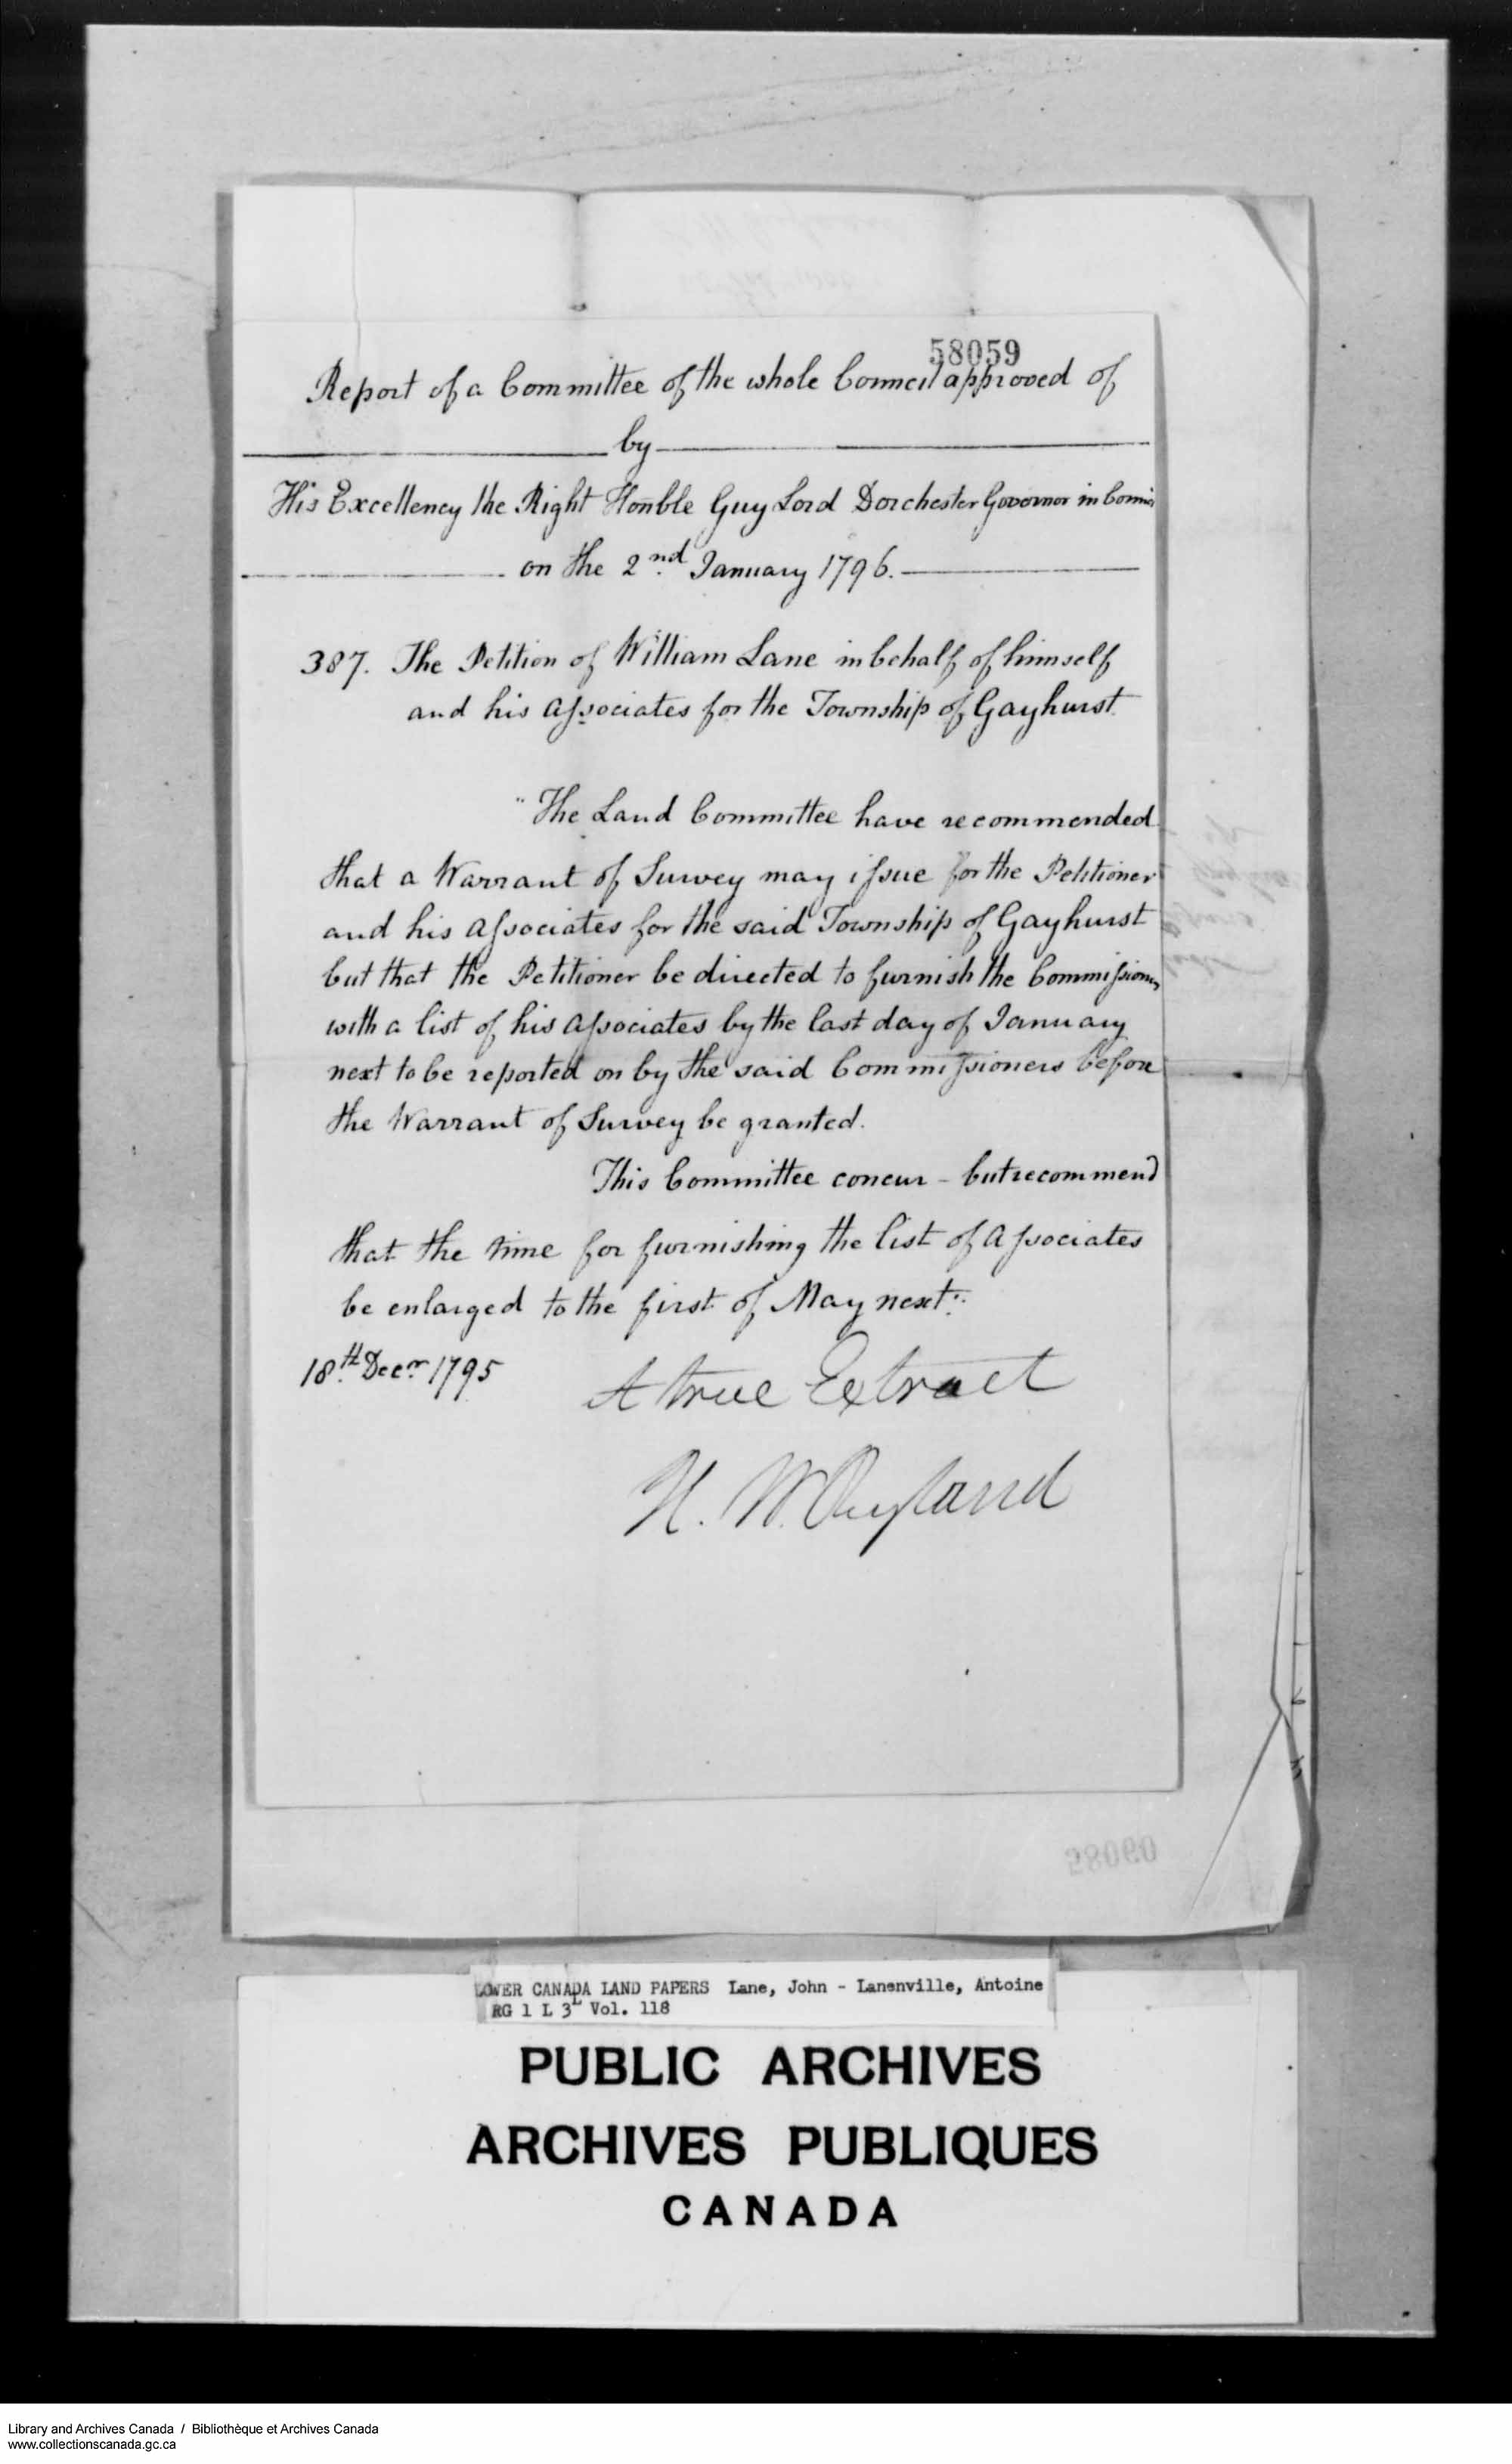 58059
Report of a Committee of the whole Council approved of
by
His Excellency the Right Honble Guy Lord Dorchester Governor in
on the 2nd January 1796.
387. The Petition of William Lane in behalf of himself
and his Associates for the Township of Gayhurst
"The Land Committee have recommended
that a Warrant of Survey may issue for the Petitioner
and his Associates for the said Township of Gayhurst
but that the Petitioner be directed to furnish the Commissioners
with a list of his Associates by the last day of January
next to be reported on by the said Commissioners before
the Warrant of Survey be granted.
This Committee concur - but recommend
that the time for furnishing the list of Associates
be enlarged to the first of May next."
18th Decr 1795
A true Extract
H. W. Ryland
LOWER CANADA LAND PAPERS Lane, John - Lanenville, Antoine
RG 1 L 3L Vol. 118
PUBLIC ARCHIVES
ARCHIVES PUBLIQUES
CANADA
Library and Archives Canada / Bibliothèque et Archives Canada
www.collectionscanada.gc.ca